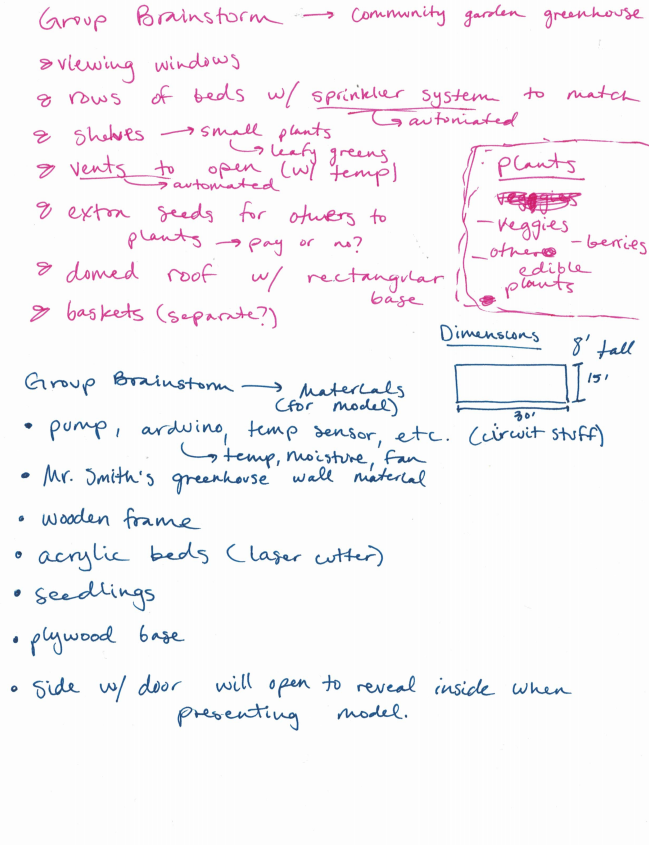 Group Brainstorm → Community garden greenhouse
viewing windows
rows of beds w/ sprinkler system to match
↳ automated
shelves → small plants
↳ leafy greens
vents to open (w/ temp)
→ automated
extra seeds for others to
plants → pay or no?
domed roof w/ rectangular
base
baskets (separate?)
plants
- veggies
- other - berries
edible
plants
Dimensions
8' tall
15'
30'
Group Brainstorm → Materials
(for model)
• pump, arduino, temp sensor, etc. (circuit stuff)
↳ temp, moisture, fan
• Mr. Smith's greenhouse wall material
• wooden frame
• acrylic beds (laser cutter)
• seedlings
• plywood base
• side w/ door will open to reveal inside when
presenting model.